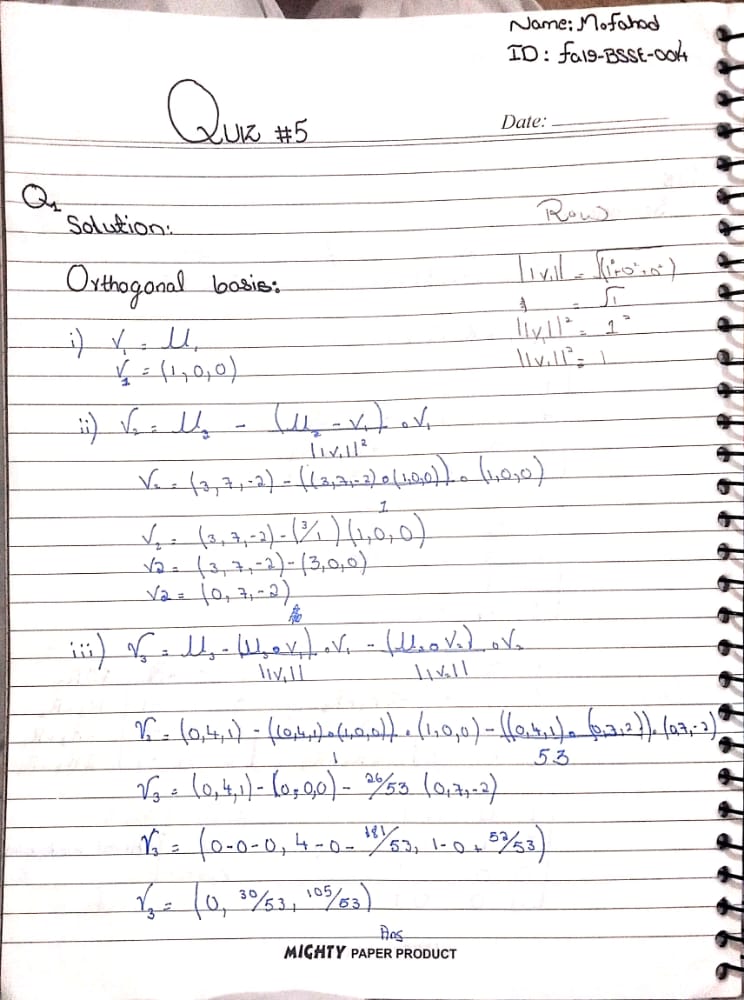 Name: Mofahad
ID: fa19-BSSE-004
Quiz #5
Date:
Q1
Solution:
Row
Orthogonal basis:
||v1|| = √(1²+0²+0²)
= √1
||v1||² = 1²
||v1||² = 1
i) V1 = U1
V1 = (1,0,0)
ii) V2 = U2 - (U2 - V1) . V1
||V1||²
V2 = (3,7,-2) - ((3,7,-2) . (1,0,0)) . (1,0,0)
1
V2 = (3,7,-2) - (3/1) (1,0,0)
V2 = (3,7,-2) - (3,0,0)
V2 = (0,7,-2)
iii) V3 = U3 - (U3 . V1) . V1 - (U3 . V2) . V2
||V1|| ||V2||
V3 = (0,4,1) - ((0,4,1) . (1,0,0)) . (1,0,0) - ((0,4,1) . (0,7,2)) . (0,7,-2)
1 53
V3 = (0,4,1) - (0,0,0) - 26/53 (0,7,-2)
V3 = (0-0-0, 4-0- 181/53, 1-0+ 52/53)
V3 = (0, 30/53, 105/53)
Ans
MIGHTY PAPER PRODUCT